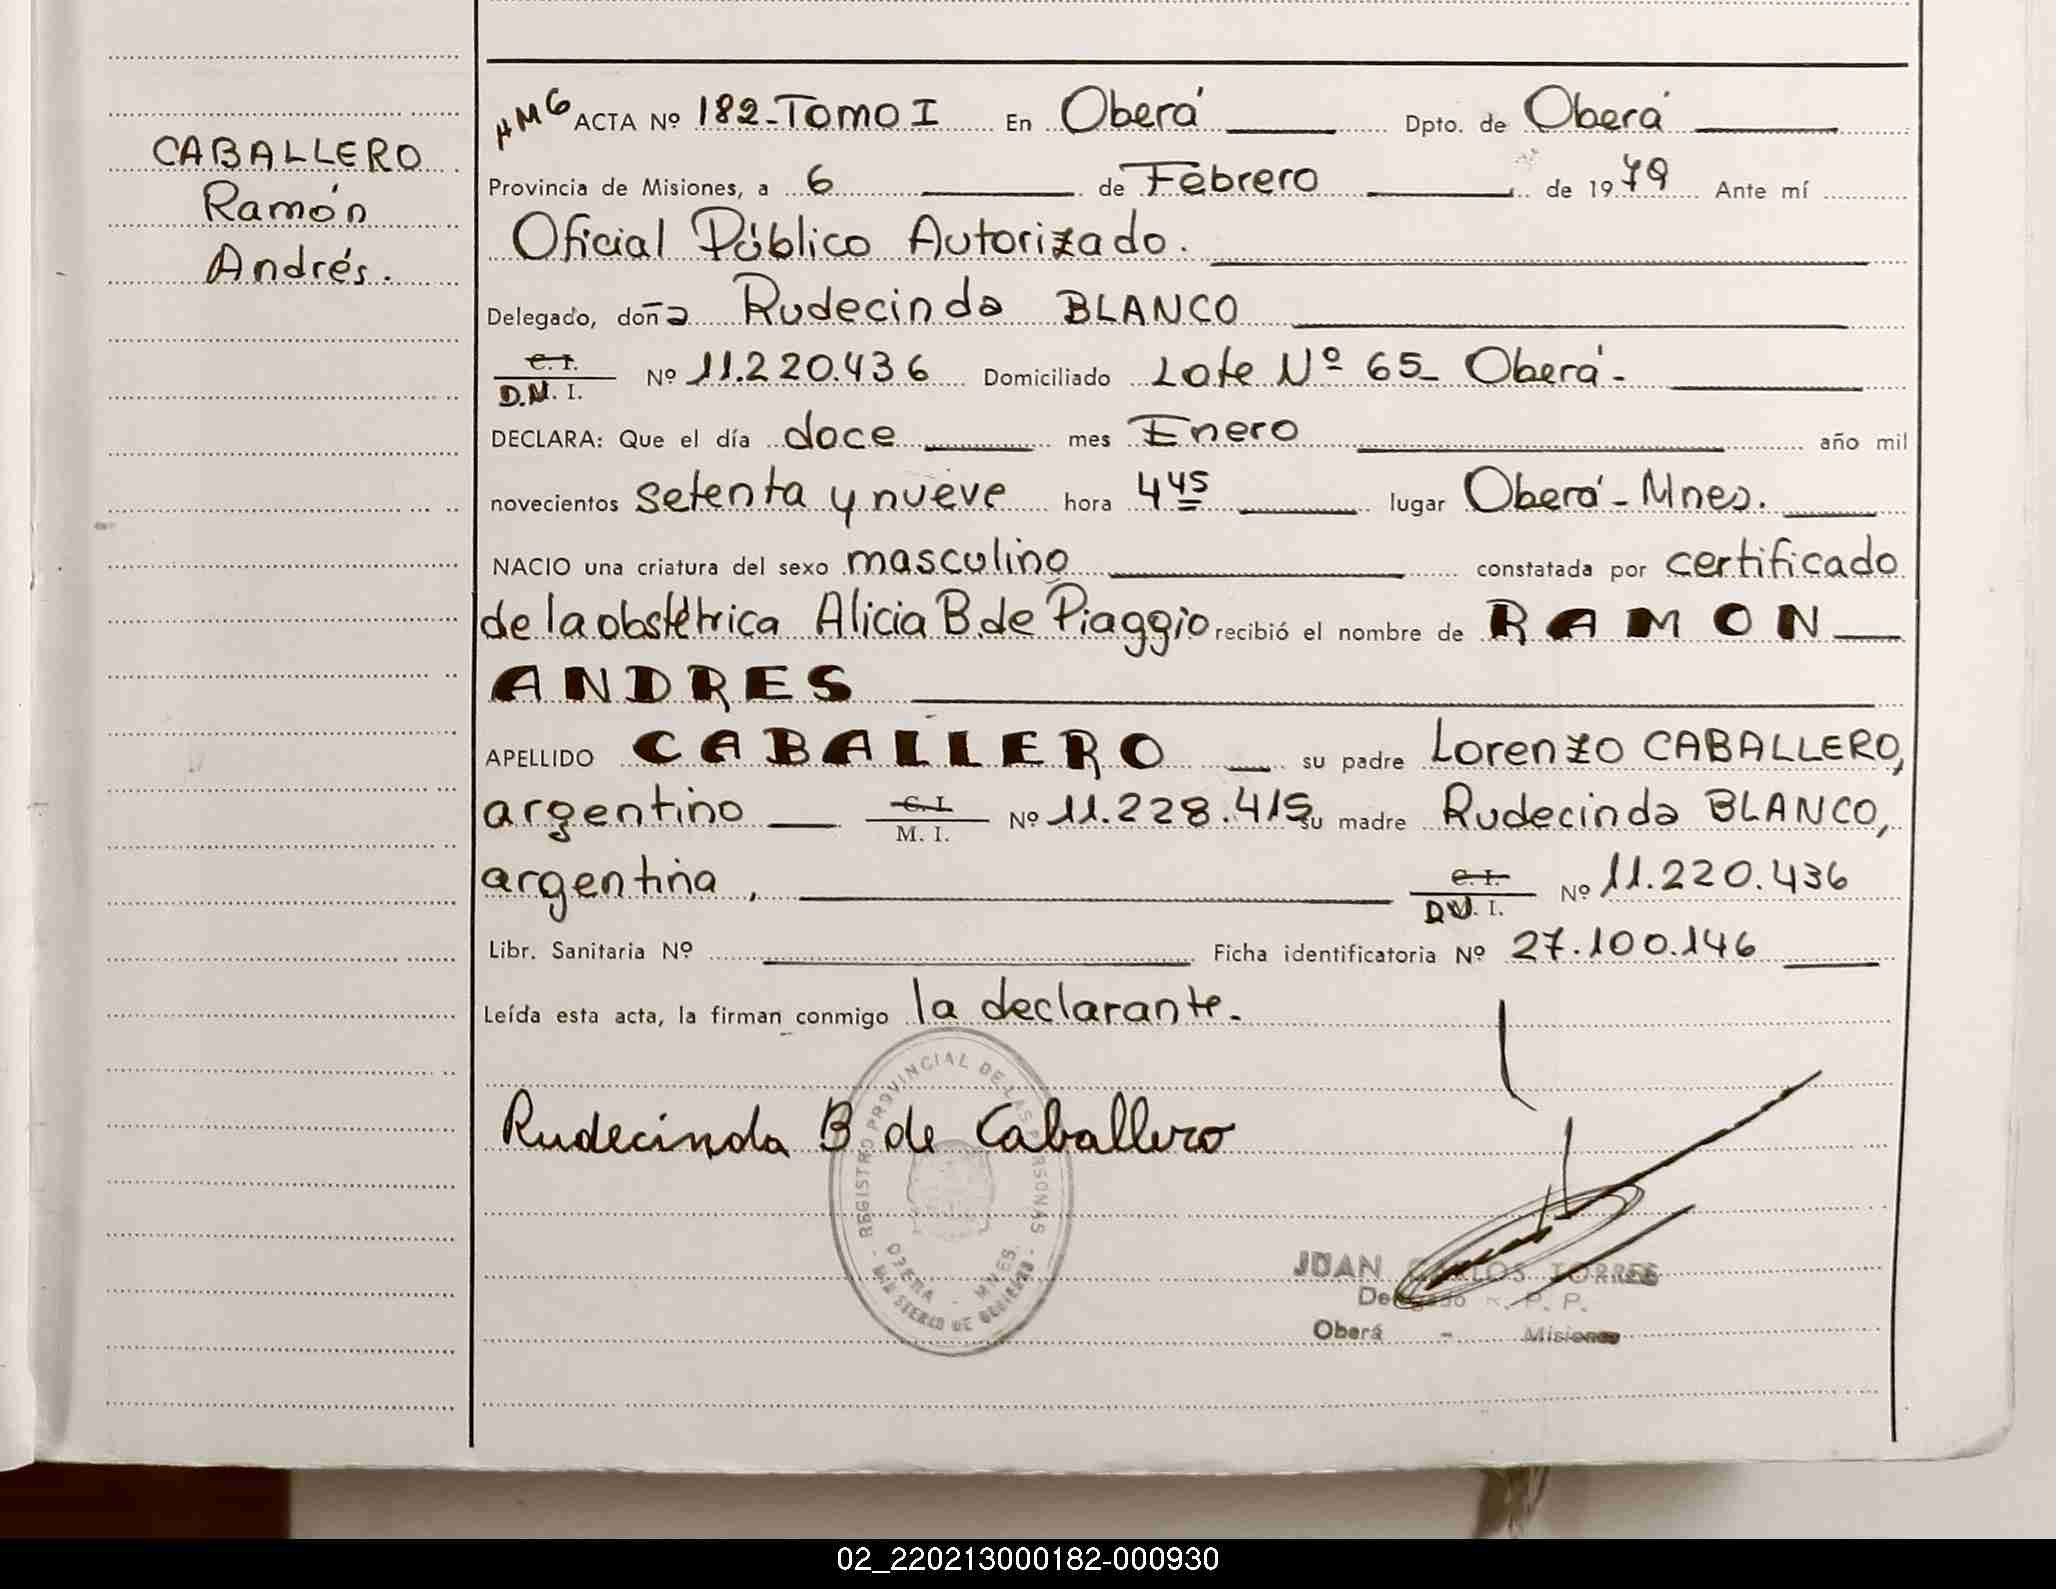 CABALLERO
Ramón
Andrés.
HMG ACTA Nº 182-Tomo I En Oberá Dpto. de Oberá
Provincia de Misiones, a 6 de Febrero de 1979 Ante mí
Oficial Público Autorizado.
Delegado, doña Rudecinda BLANCO
C. I.
D.N. I. Nº 11.220.436 Domiciliado Lote Nº 65_ Oberá-
DECLARA: Que el día doce mes Enero año mil
novecientos setenta y nueve hora 4 45 lugar Oberá-Mnes.
NACIO una criatura del sexo masculino constatada por certificado
de la obstétrica Alicia B. de Piaggio recibió el nombre de RAMON
ANDRES
APELLIDO CABALLERO su padre Lorenzo CABALLERO,
argentino C. I.
M. I. Nº 11.228.415 su madre Rudecinda BLANCO,
argentina, C. I.
D.N. I. Nº 11.220.436
Libr. Sanitaria Nº Ficha identificatoria Nº 27.100.146
Leída esta acta, la firman conmigo la declarante.
Rudecinda B de Caballero
REGISTRO PROVINCIAL DE LAS PERSONAS
OBERA - MNES.
MINISTERIO DE GOBIERNO
JUAN CARLOS TORRES
Delegado R. P. P.
Oberá - Misiones
02_220213000182-000930